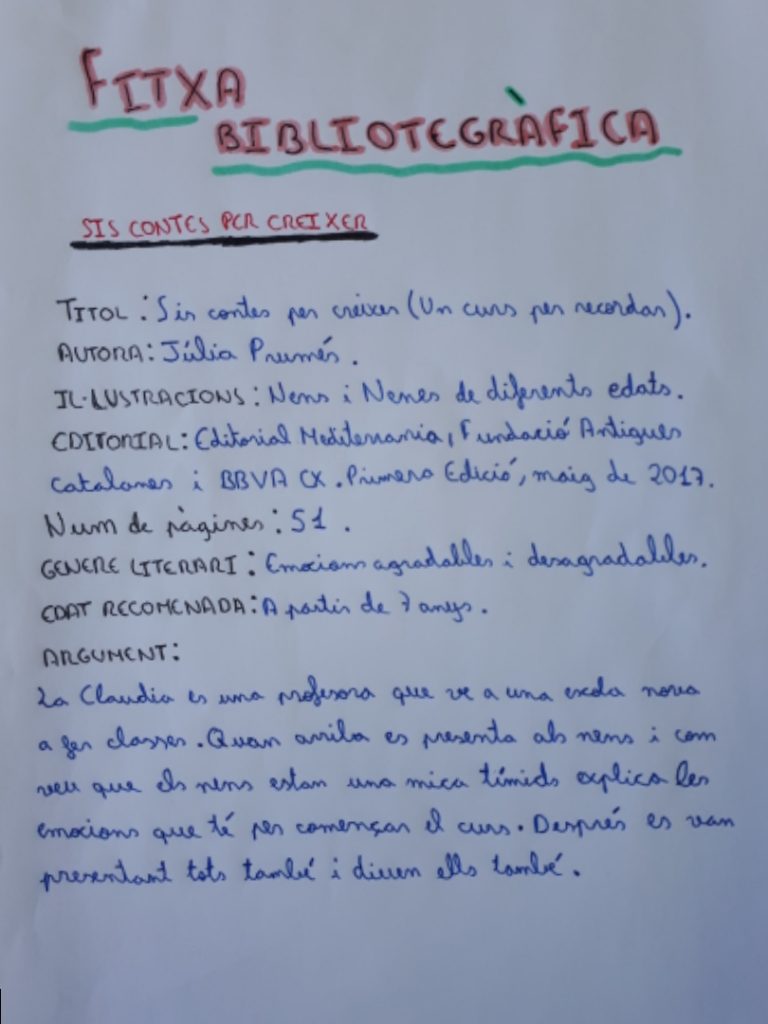 FITXA
BIBLIOTEGRÀFICA
SIS CONTES PER CREIXER
TITOL: Sis contes per créixer (Un curs per recordar).
AUTORA: Júlia Prunés.
IL·LUSTRACIONS: Nens i Nenes de diferents edats.
EDITORIAL: Editorial Mediterrania, Fundació Antigues
Catalanes i BBVA CX. Primera Edició, maig de 2017.
Num de pàgines: 51.
GENERE LITERARI: Emocions agradables i desagradables.
EDAT RECOMENADA: A partir de 7 anys.
ARGUMENT:
La Claudia es una profesora que ve a una escola nova
a fer classes. Quan arriba es presenta als nens i com
veu que els nens estan una mica tímids explica les
emocions que té per començar el curs. Després es van
presentant tots també i diuen ells també.